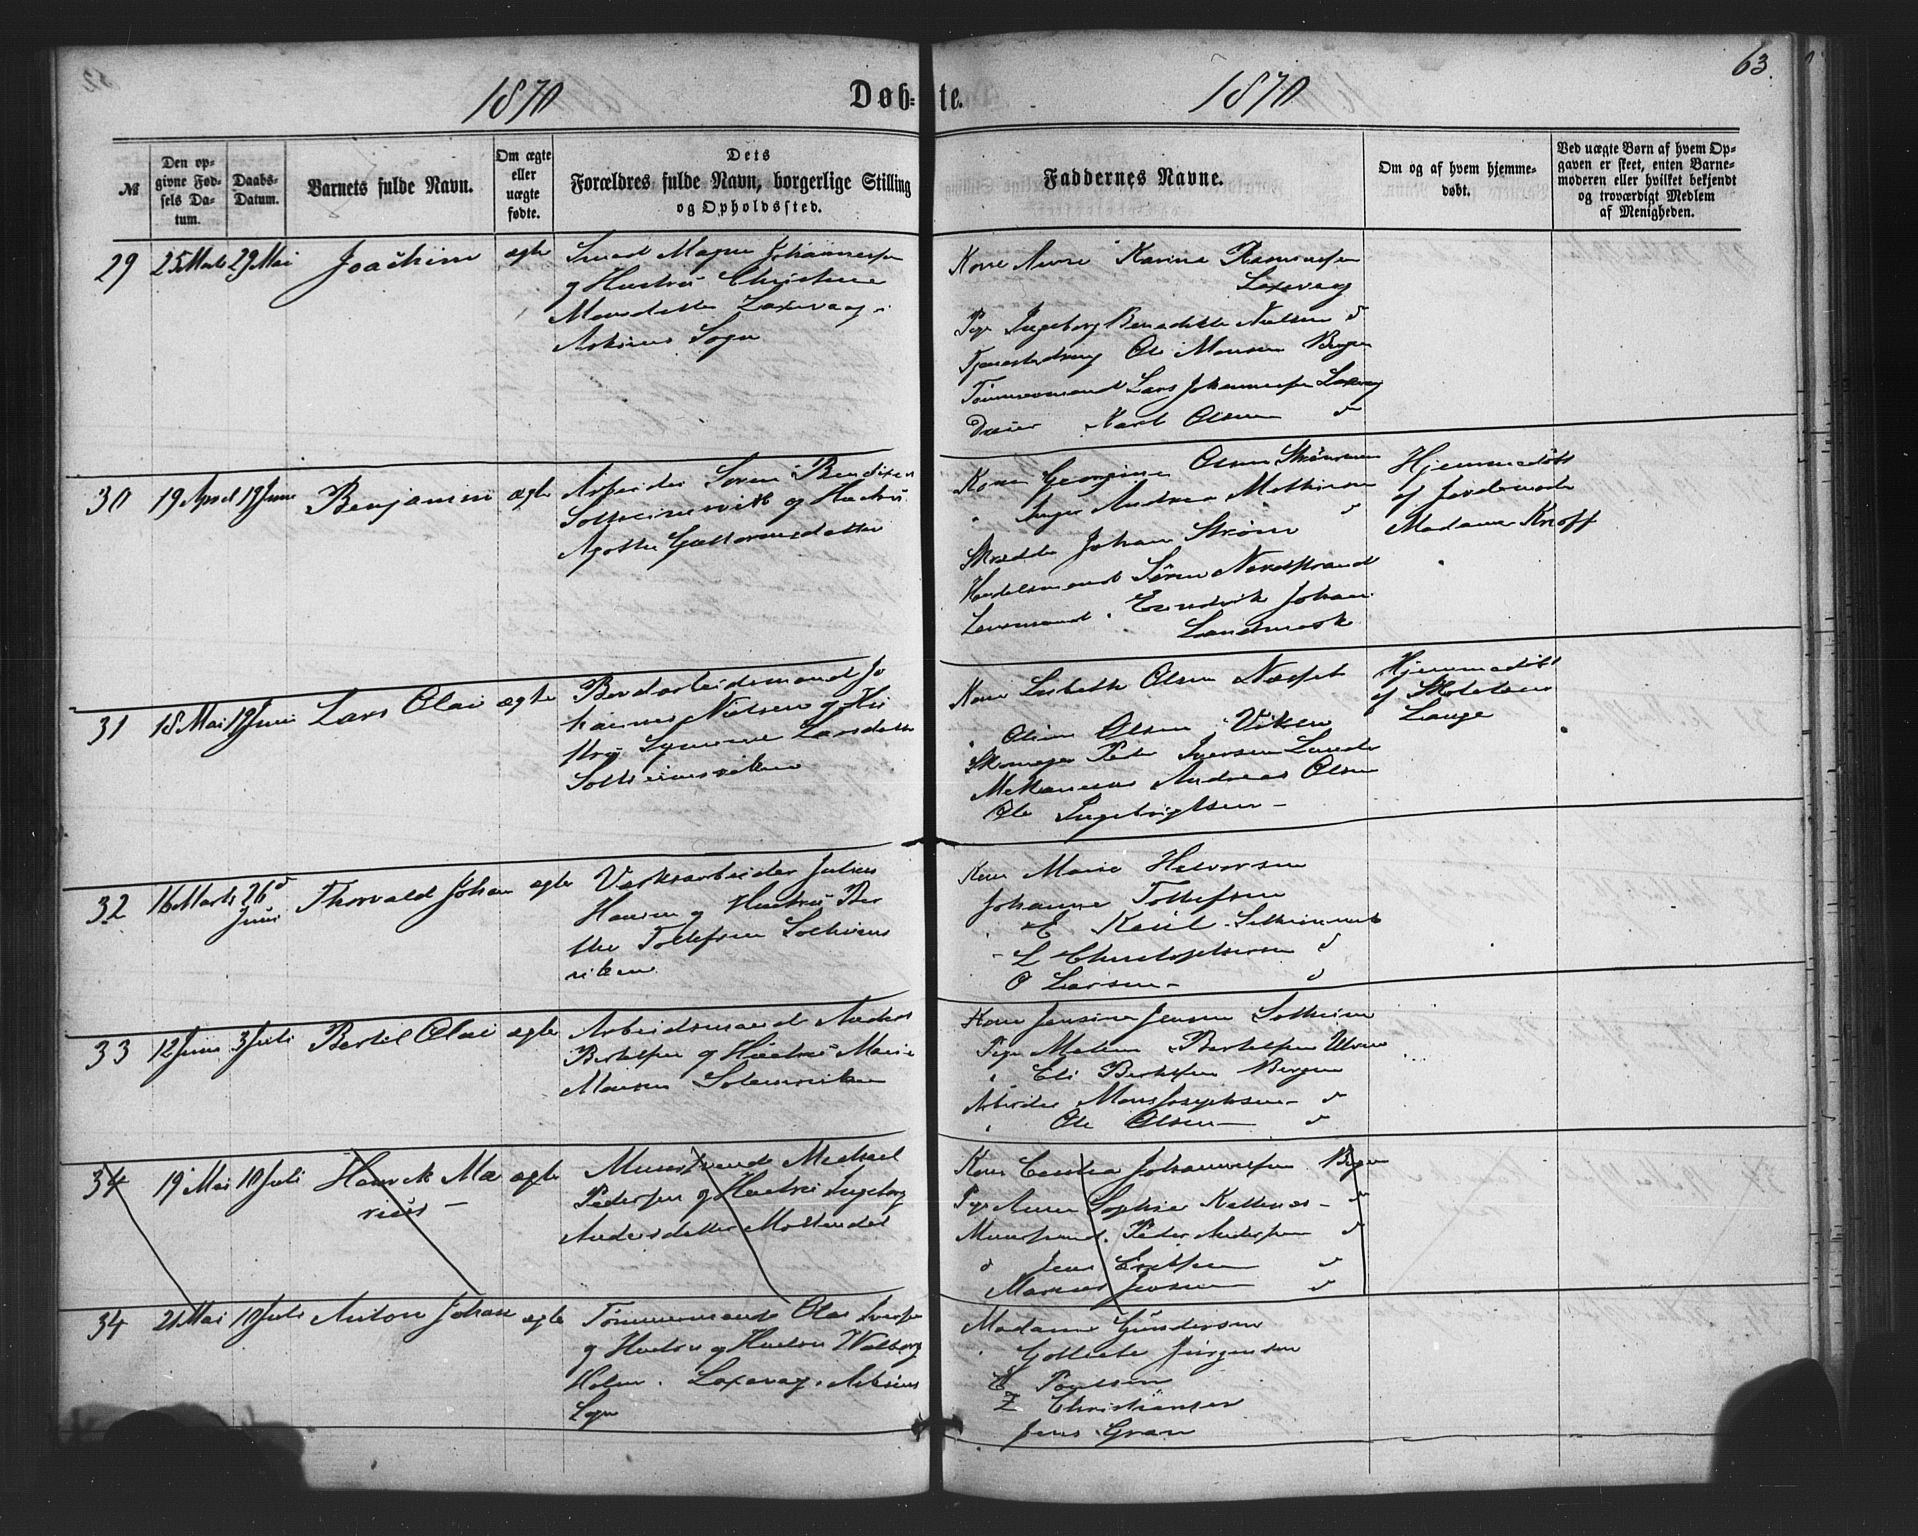 63.
1870
Døb-te.
1870
№
Den op-
givne Fød-
sels Da-
tum.
Daabs-
Datum.
Barnets fulde Navn.
Om ægte
eller
uægte
fødte.
Dets
Forældres fulde Navn, borgerlige Stilling
og Opholdssted.
Faddernes Navne.
Om og af hvem hjemme-
døbt.
Ved uægte Børn af hvem Op-
gaven er skeet, enten Barne-
moderen eller hvilket bekjendt
og troværdigt Medlem
af Menigheden.
29 25 Marts 29 Mai Joachim ægte
Smed Magne Johannessen
og Hustru Christine
Monsdatter Laxevaag
Askøens Sogn
Kone Karine Rasmussen
Laxevaag
Pige Ingeborg Benedikte Nielsen d
Tjenestedreng Ole Monsen Bergen
Tømmermand Lars Johannessen Laxevaag
Karl Olsen d
30 19 April 19 Juni Benjamin ægte
Arbeider Søren Bendixen
Solheimsvik og Hustru
Agathe Guttormsdatter
Kone Georgine Olsen
" Inger Andrea Mathiesen d
Skrædder Johan Strøm
Handelsmand Søren Nordstrand
Johan
Landmark
Hjemmedøbt
af Jordemoder
Madame Knoff
31 18 Mai 19 Juni Lars Olai ægte
Bordarbeidsmand Jo
hannes Nielsen og Hu
stru Larsdatter
Solheimsviken
Kone Lisbeth Olsen Næsset
" Oline Olsen Viken
Skomager Peder Iversen Lunde
Mekanicus Andreas Olsen
Ole Ingebrigtsen -
Hjemmedøbt
af
Lange
32 16 Marts 26d
Juni Thorvald Johan ægte
Værksarbeider Julius
Hansen og Hustru Ber
the Tollefsen Solheims
viken
Kone Marie Halvorsen
Johanne Tollefsen
" E Solheimsvik
- L Christophersen d
O Larsen - d
33 12 Juni 3 Juli Bertil Olai ægte
Arbeidsmand Anders
Bertelsen og Hustru Marie
Monsen Solemsviken
Kone Jensine Jensen Solheim
Pige Malene Bertelsen
" Eli Bertelsen Bergen
Arbeider Mons Josephsen - d
" Ole Olsen - d
34 19 Mai 10 Juli Henrik Ma ægte
rius -
Murersvend Michael
Pedersen og Hustru Ingeborg
Andersdatter Møllendal
Kone Johannessen Bergen
Pige Anne Sophie - d
Murersvend Peder Andersen d
d Jens Eriksen d
Marius Jensen d
34 21 Mai 10 Juli Anton Johan ægte
Tømmermand Olai Iversen
og Hustru og Hustru Walborg
Holm. Laxevaag. Askøens
Sogn
Madame Gundersen
" Jürgensen
E Poulsen
Z Christiansen
Jens Gran